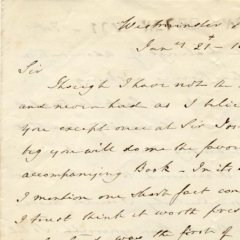 Westminster
Jany 21st - 1
Sir
Though I have not the
and never had as I believ
you except once at Sir
beg you will do me the favo
accompanying Book - In its
I mention one short fact con
I trust think it worth pres
was the first of